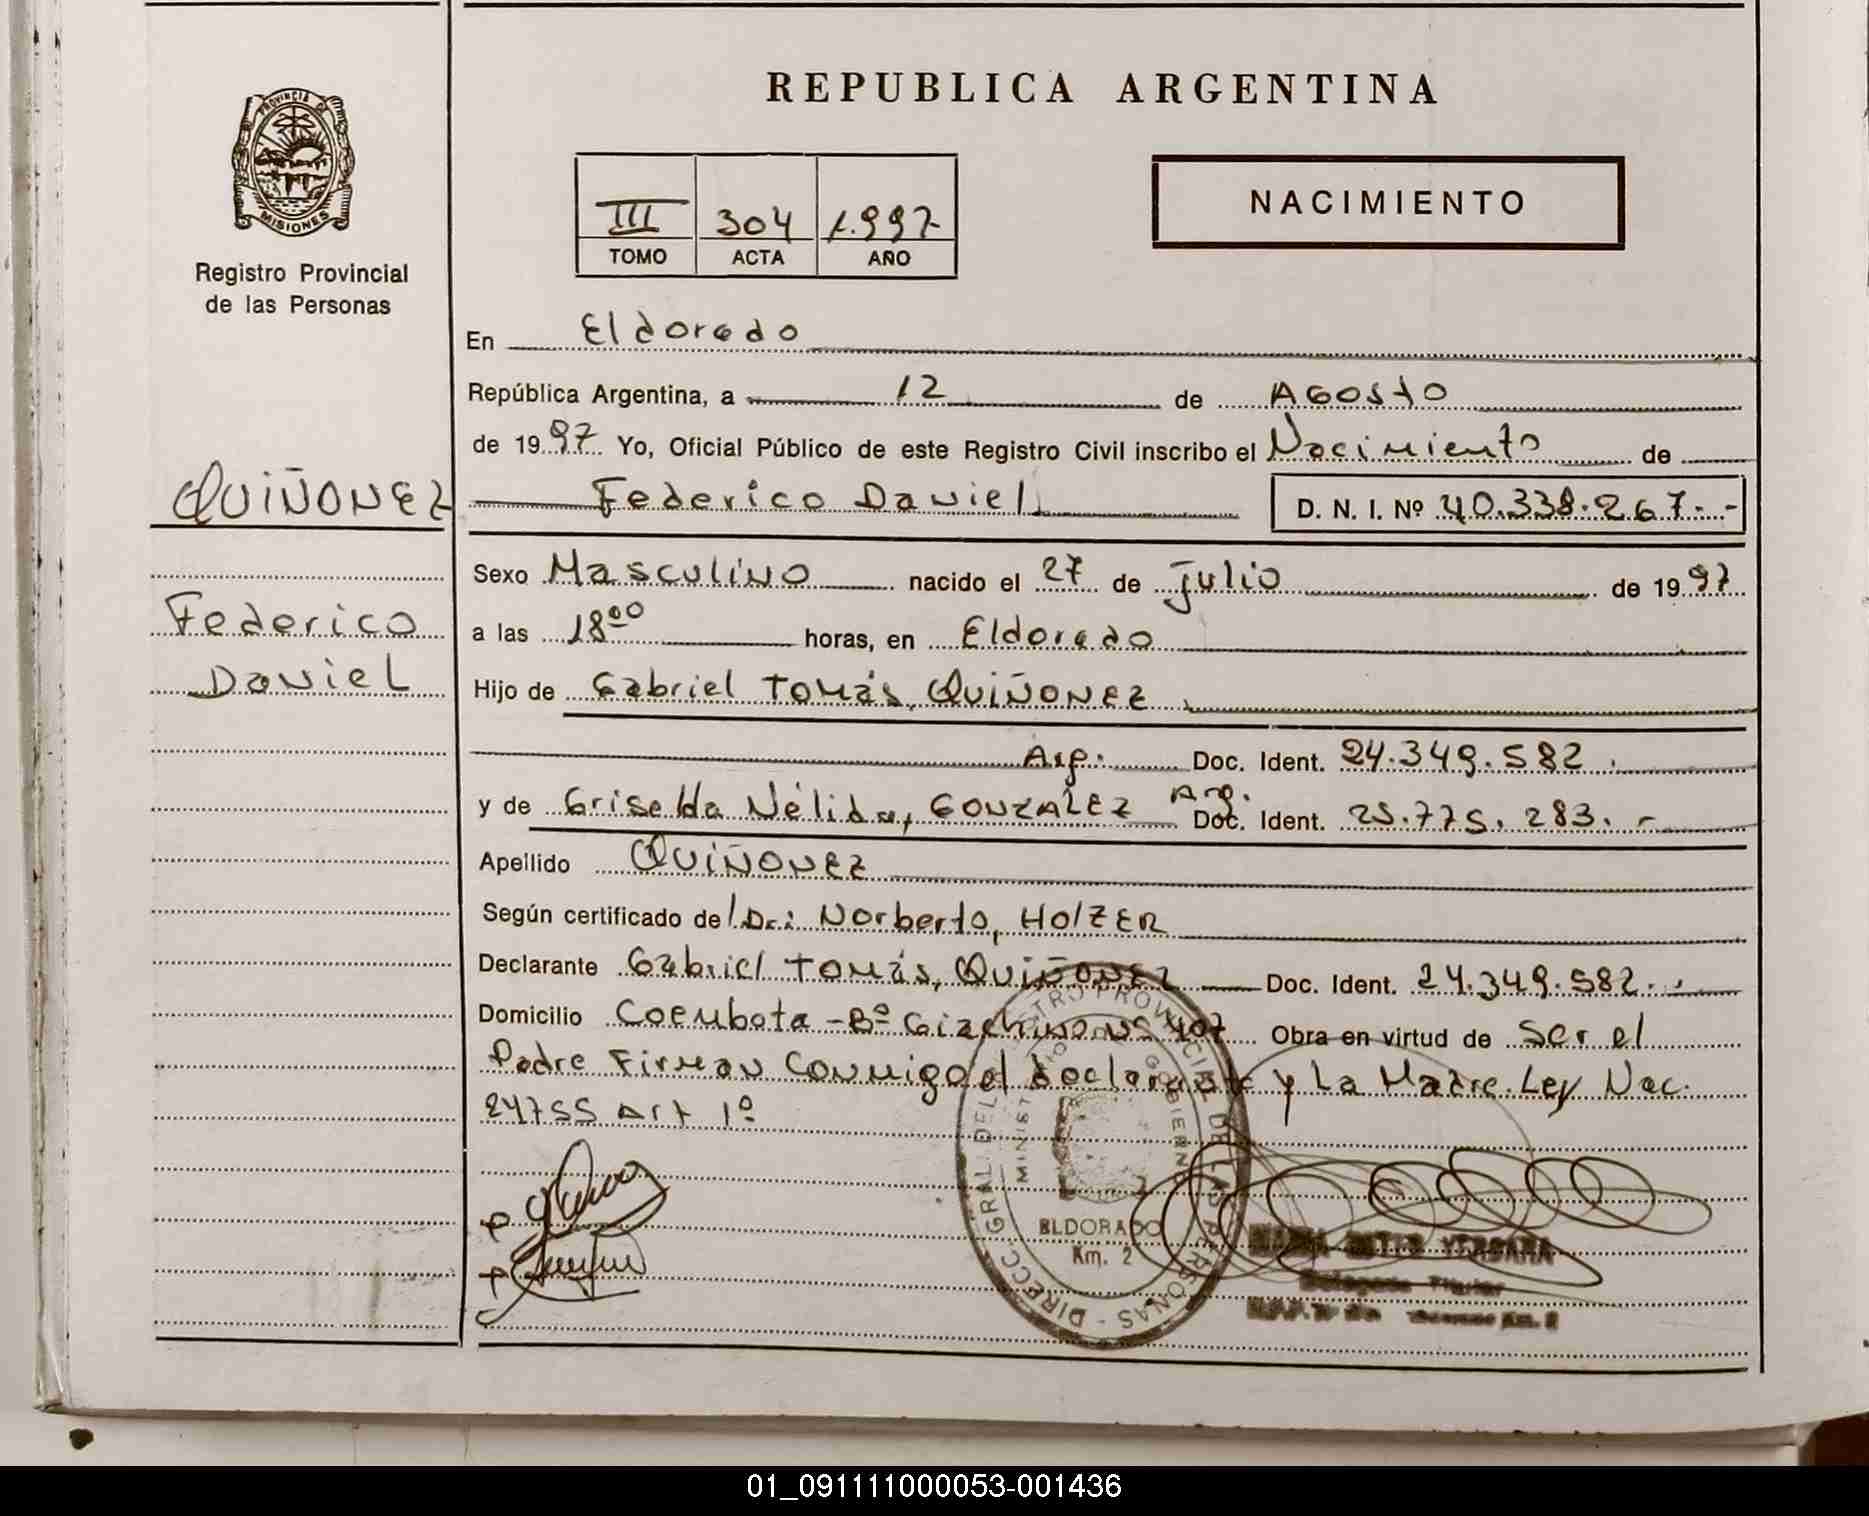 PROVINCIA DE
MISIONES
Registro Provincial
de las Personas
QUIÑONEZ
Federico
Daniel
REPUBLICA ARGENTINA
III 304 1.997
TOMO ACTA AÑO
NACIMIENTO
En Eldorado
República Argentina, a 12 de Agosto
de 1997 Yo, Oficial Público de este Registro Civil inscribo el Nacimiento de
Federico Daniel D. N. I. Nº 40.338.267.-
Sexo Masculino nacido el 27 de Julio de 1997
a las 18⁰⁰ horas, en Eldorado
Hijo de Gabriel Tomás, QUIÑONEZ
Arg. Doc. Ident. 24.349.582.
y de Griselda Nélida, GONZALEZ Arg. Doc. Ident. 25.775.283.-
Apellido QUIÑONEZ
Según certificado de l Dr.: Norberto, HOlZER
Declarante Gabriel Tomás, QUIÑONEZ Doc. Ident. 24.349.582.-
Domicilio -Bº Giachino Nº 407 Obra en virtud de Ser el
Padre Firman Conmigo el declarante y La Madre. Ley Nac.
24755 Art 1º
DIRECC. GRAL. DEL REGISTRO PROVINCIAL DE LAS PERSONAS -
MINISTERIO DE GOBIERNO
ELDORADO
Km. 2
Delegada Titular
01_091111000053-001436